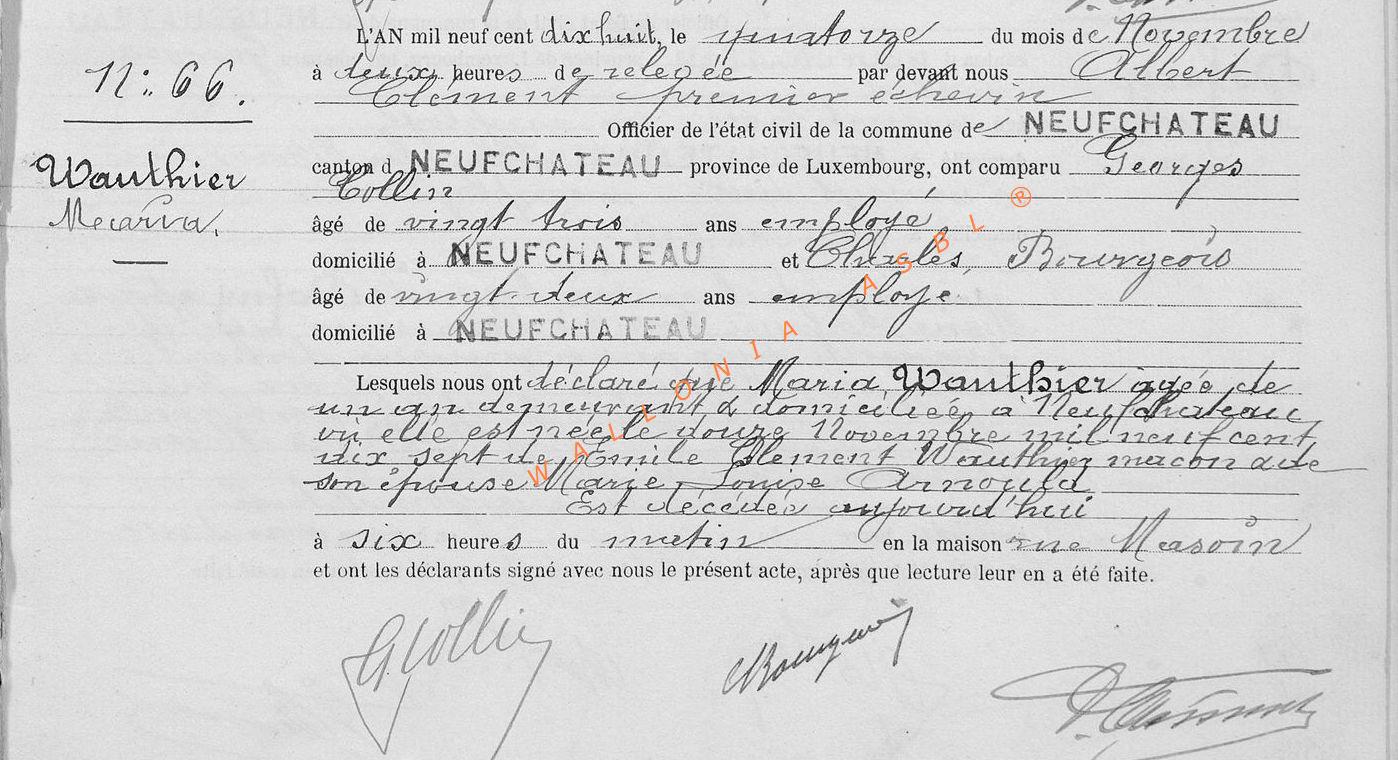 L'AN mil neuf cent dix huit, le quatorze du mois de Novembre
N: 66.
à deux heures de relevée par devant nous Albert
Clément premier échevin
Officier de l'état civil de la commune de NEUFCHATEAU
Wauthier
Maria.
canton d NEUFCHATEAU province de Luxembourg, ont comparu Georges
Collin
âgé de vingt trois ans employé
domicilié à NEUFCHATEAU et Charles, Bourgeois
âgé de vingt-deux ans employe
domicilié à NEUFCHATEAU
Lesquels nous ont déclaré que Maria Wauthier agée de
un an demeurant & domiciliée à Neufchateau
où elle est née le douze Novembre mil neuf cent
dix sept de Emile Clément Wauthier macon & de
son épouse Marie Louise Arnould
Est décédée aujourd'hui
à six heures du matin en la maison rue
et ont les déclarants signé avec nous le présent acte, après que lecture leur en a été faite.
G. Collin
Bourgeois
A. Clément
WALLONIA ASBL ®